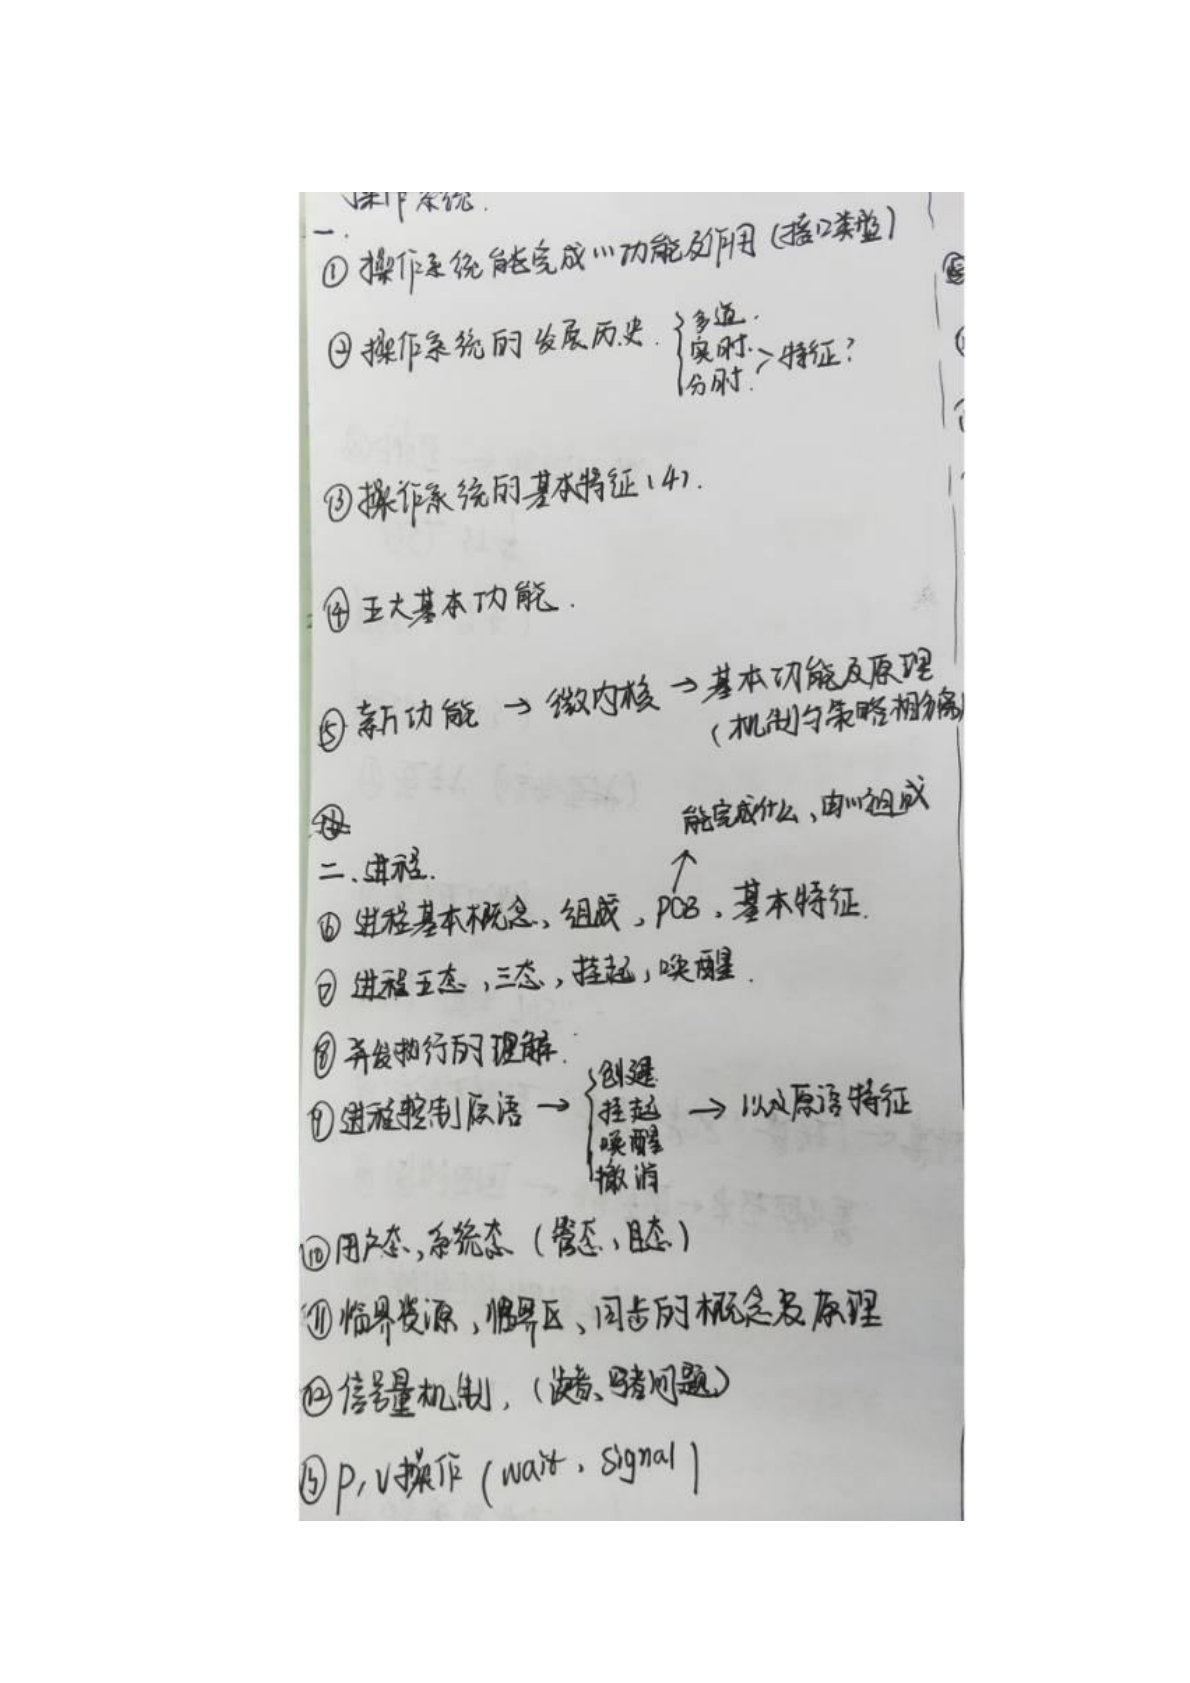 操作系统.
一.
① 操作系统能完成的功能及作用(接口类型)
② 操作系统的发展历史. { 多道.
实时. > 特征?
分时.
③ 操作系统的基本特征(4).
④ 五大基本功能.
⑤ 新功能 → 微内核 → 基本功能及原理
(机制与策略相分离)
能完成什么、由…组成
二、进程.
⑥ 进程基本概念、组成, PCB, 基本特征.
⑦ 进程五态,三态,挂起,唤醒.
⑧ 并发执行的理解.
⑨ 进程控制原语 → { 创建
挂起 → 以及原语特征
唤醒
撤消
⑩ 用户态,系统态(管态,目态)
⑪ 临界资源,临界区、同步的概念及原理
⑫ 信号量机制,(读者、写者问题)
⑬ P,V操作(wait, signal)